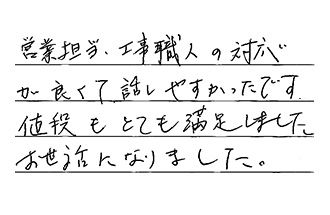 営業担当、工事職人の対応
が良くて話しやすかったです
値段もとても満足しました
お世話になりました。